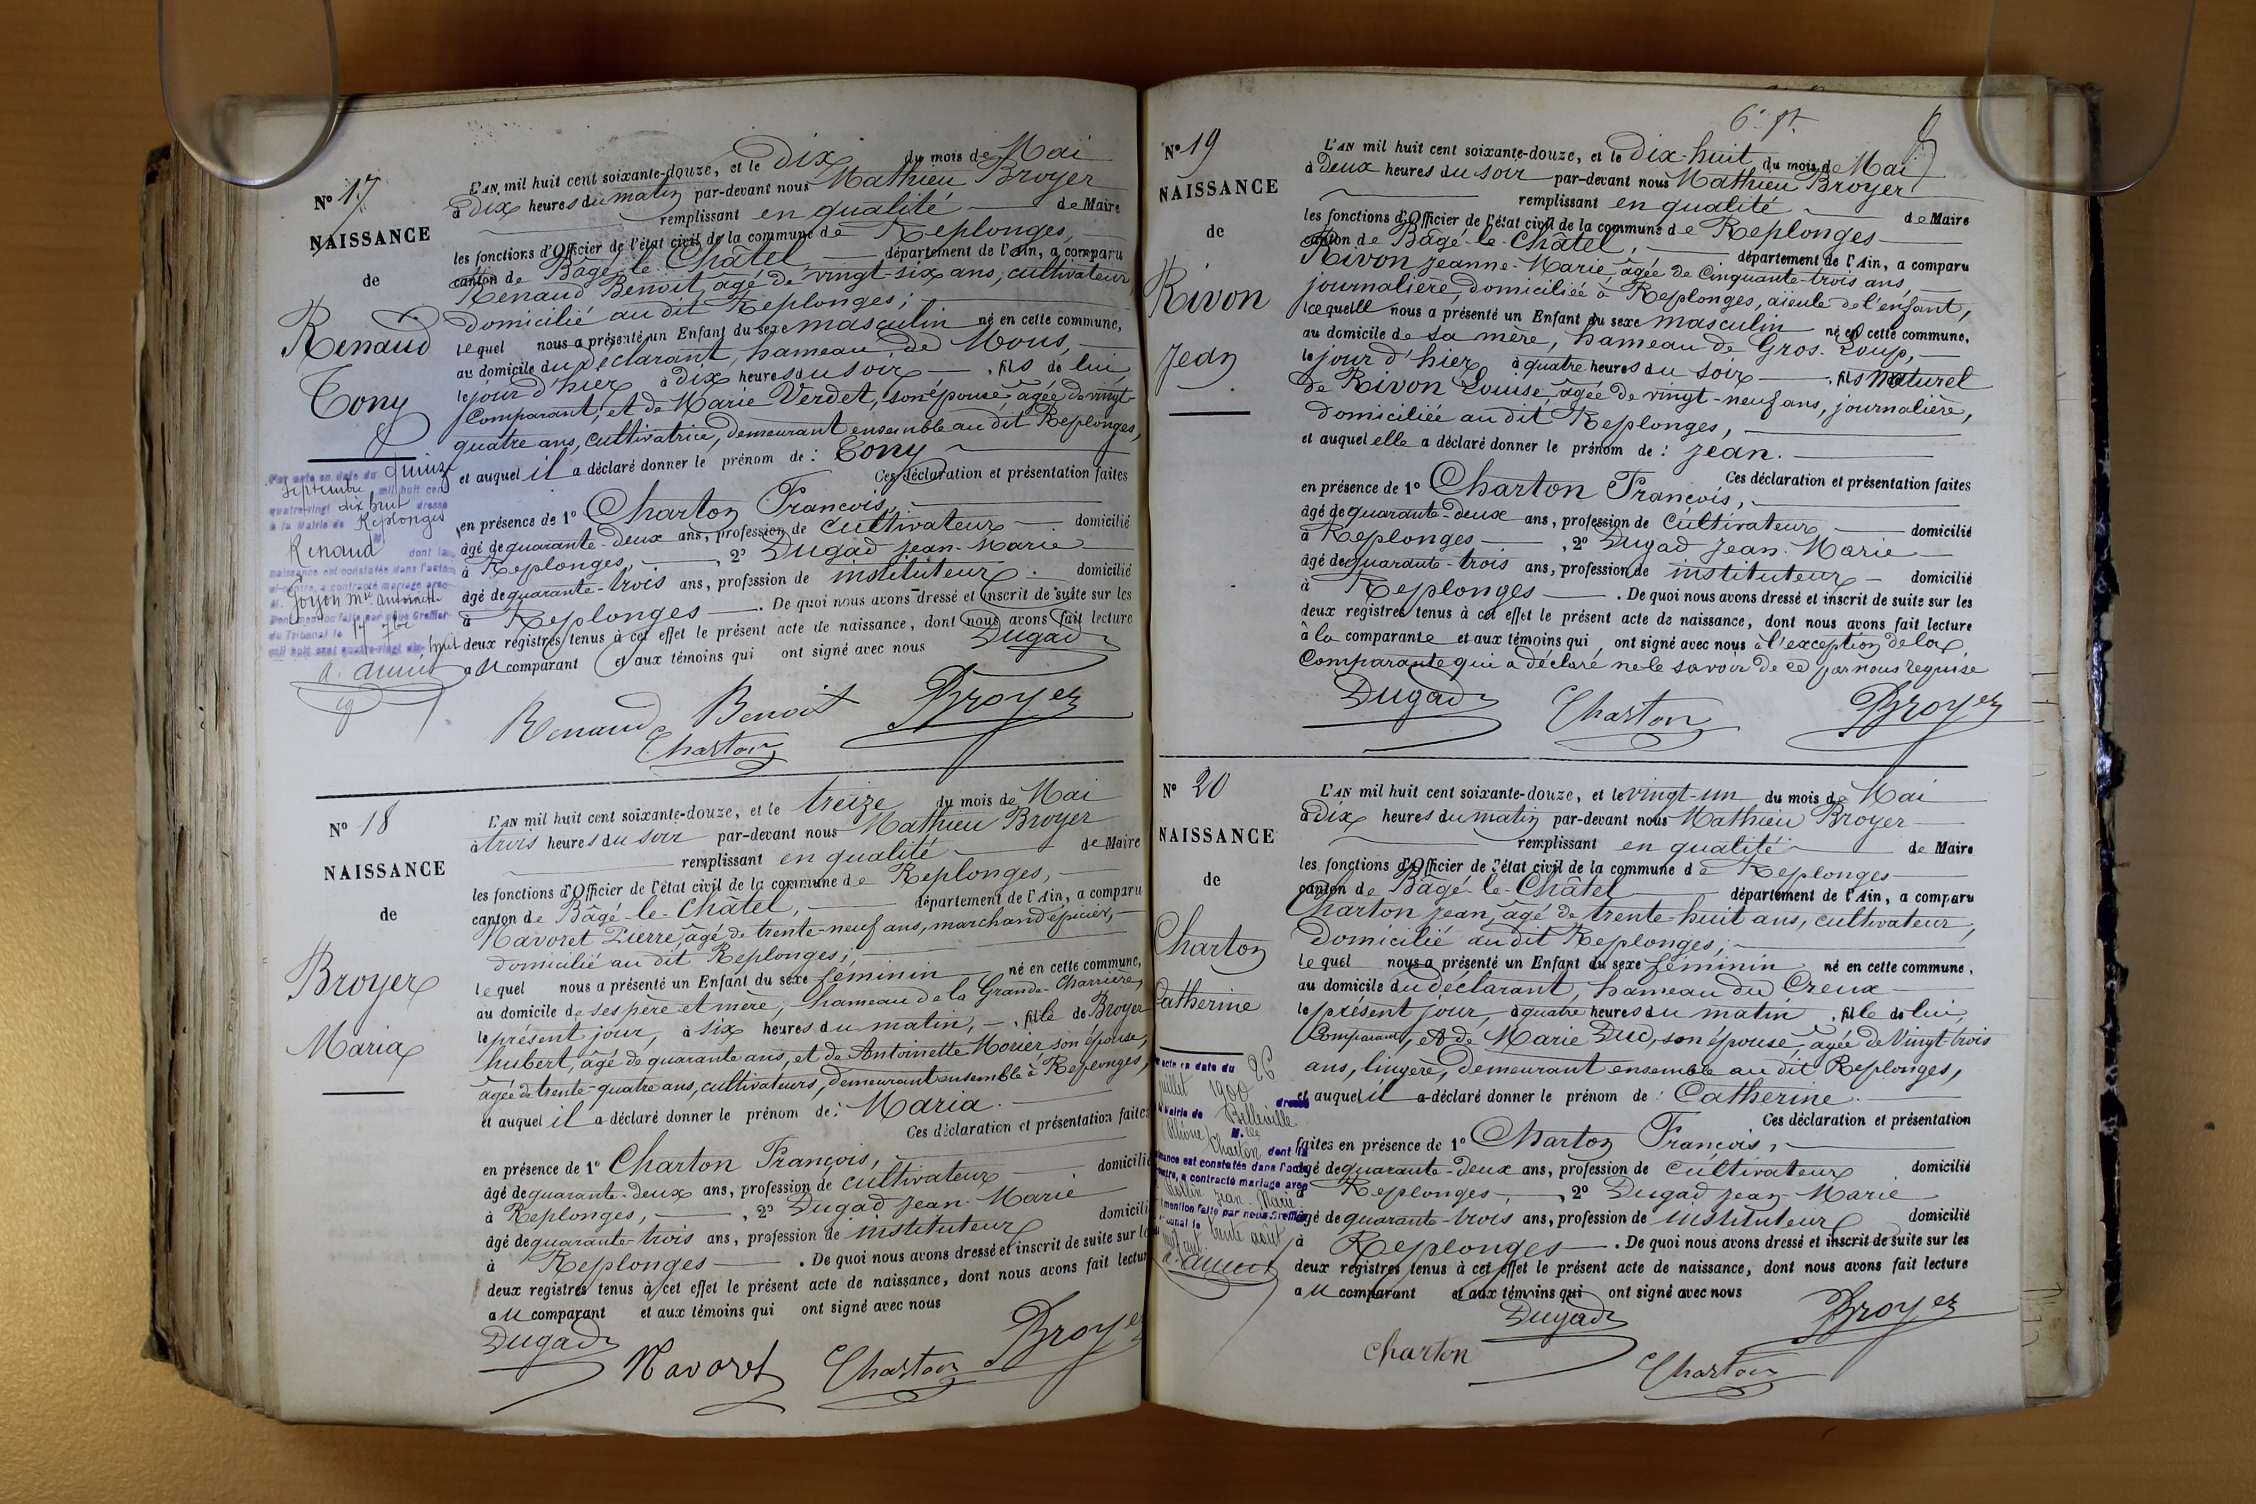 N° 17
NAISSANCE
de
Renaud
Tony
Par acte en date du quinze
septembre mil huit cent
quatre-vingt dix huit dressé
à la Mairie de Replonges
M.
Renaud dont la
naissance est constatée dans l'acte
ci-contre, a contracté mariage avec
M. Goyon Mie Antoinette
Dont mention faite par nous Greffier
du Tribunal le 17 7bre
mil huit cent quatre-vingt dix-huit
L'AN mil huit cent soixante-douze, et le dix du mois de Mai
à Dix heures du matin par-devant nous Mathieu Broyer
remplissant en qualité de Maire
les fonctions d'Officier de l'état civil de la commune de Replonges,
canton de Bâgé-le-Châtel département de l'Ain, a comparu
Renaud Benoit, âgé de vingt-six ans, cultivateur
domicilié au dit Replonges;
lequel nous a présenté un Enfant du sexe masculin né en cette commune,
au domicile du déclarant, hameau de Mons,
le jour d'hier à dix heures du soir, fils de lui
Comparant, et de Marie Verdet, son épouse, âgée de vingt-
quatre ans, cultivatrice, demeurant ensemble au dit Replonges,
et auquel il a déclaré donner le prénom de : Tony
Ces déclaration et présentation faites
en présence de 1° Charton François,
âgé de quarante-deux ans, profession de cultivateur domicilié
à Replonges, , 2° Dugad Jean-Marie
âgé de quarante-trois ans, profession de instituteur domicilié
à Replonges . De quoi nous avons dressé et inscrit de suite sur les
deux registres tenus à cet effet le présent acte de naissance, dont nous avons fait lecture
au comparant et aux témoins qui ont signé avec nous Dugad
Renaud Benoit Broyer
Charton
N° 18
NAISSANCE
de
Broyer
Maria
L'AN mil huit cent soixante-douze, et le treize du mois de Mai
à trois heures du soir par-devant nous Mathieu Broyer
remplissant en qualité de Maire
les fonctions d'Officier de l'état civil de la commune de Replonges,
canton de Bâgé-le-Châtel, département de l'Ain, a comparu
Navoret Pierre, âgé de trente-neuf ans, marchand épicier,
domicilié au dit Replonges;
lequel nous a présenté un Enfant du sexe féminin né en cette commune,
au domicile de ses père et mère, hameau de la Grande-Charrière,
le présent jour, à six heures du matin, , fille de Broyer
hubert, âgé de quarante ans, et de Antoinette Morier son épouse,
âgée de trente-quatre ans, cultivateurs, demeurant ensemble à Replonges,
et auquel il a déclaré donner le prénom de : Maria.
Ces déclaration et présentation faites
en présence de 1° Charton François,
âgé de quarante-deux ans, profession de cultivateur domicilié
à Replonges, , 2° Dugad Jean-Marie
âgé de quarante-trois ans, profession de instituteur domicilié
à Replonges . De quoi nous avons dressé et inscrit de suite sur les
deux registres tenus à cet effet le présent acte de naissance, dont nous avons fait lecture
au comparant et aux témoins qui ont signé avec nous
Dugad Navoret Charton Broyer
N° 19
NAISSANCE
de
Rivon
Jean
L'AN mil huit cent soixante-douze, et le Dix-huit du mois de Mai
à Deux heures du soir par-devant nous Mathieu Broyer
remplissant en qualité de Maire
les fonctions d'Officier de l'état civil de la commune de Replonges
canton de Bâgé-le-Châtel, département de l'Ain, a comparu
Rivon Jeanne-Marie, âgée de Cinquante-trois ans,
journalière, domiciliée à Replonges, aïeule de l'enfant,
laquelle nous a présenté un Enfant du sexe masculin né en cette commune,
au domicile de sa mère, hameau de Gros-Loup,
le jour d'hier à quatre heures du soir , fils naturel
de Rivon Louise, âgée de vingt-neuf ans, journalière,
domiciliée au dit Replonges,
et auquel elle a déclaré donner le prénom de : Jean.
Ces déclaration et présentation faites
en présence de 1° Charton François,
âgé de quarante-deux ans, profession de cultivateur domicilié
à Replonges , 2° Dugad Jean-Marie
âgé de quarante-trois ans, profession de instituteur domicilié
à Replonges . De quoi nous avons dressé et inscrit de suite sur les
deux registres tenus à cet effet le présent acte de naissance, dont nous avons fait lecture
à la comparante et aux témoins qui ont signé avec nous à l'exception de la
Comparante qui a déclaré ne le savoir de ce par nous requise
Dugad Charton Broyer
N° 20
NAISSANCE
de
Charton
Catherine
acte en date du 26
juillet 1900 dressé
Mairie de Belleville
(Rhône) M.lle
Charton dont la
naissance est constatée dans l'acte
contre, a contracté mariage avec
Jean-Marie
mention faite par nous Greffier
Tribunal le trente août
L'AN mil huit cent soixante-douze, et le vingt-un du mois de Mai
à Dix heures du matin par-devant nous Mathieu Broyer
remplissant en qualité de Maire
les fonctions d'Officier de l'état civil de la commune de Replonges
canton de Bâgé-le-Châtel département de l'Ain, a comparu
Charton Jean, âgé de trente-huit ans, cultivateur,
domicilié au dit Replonges;
lequel nous a présenté un Enfant du sexe féminin né en cette commune,
au domicile du déclarant, hameau du Creux
le présent jour, à quatre heures du matin , fille de lui,
Comparant, et de Marie Duc, son épouse, âgée de Vingt-trois
ans, lingère, demeurant ensemble au dit Replonges,
et auquel il a déclaré donner le prénom de : Catherine.
Ces déclaration et présentation
faites en présence de 1° Charton François,
âgé de quarante-deux ans, profession de cultivateur domicilié
à Replonges, , 2° Dugad Jean-Marie
âgé de quarante-trois ans, profession de instituteur domicilié
à Replonges . De quoi nous avons dressé et inscrit de suite sur les
deux registres tenus à cet effet le présent acte de naissance, dont nous avons fait lecture
au comparant et aux témoins qui ont signé avec nous
Dugad Broyer
charton Charton